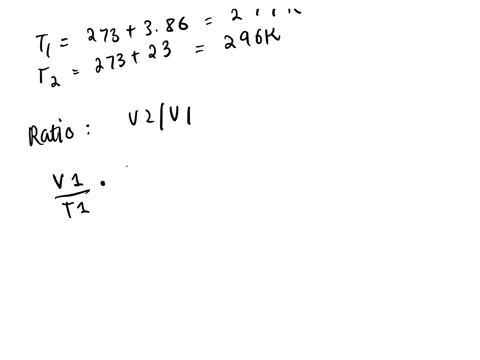 T1 = 273 + 3.86 =
T2 = 273 + 23 = 296K
Ratio : V2/V1
V1/T1 .